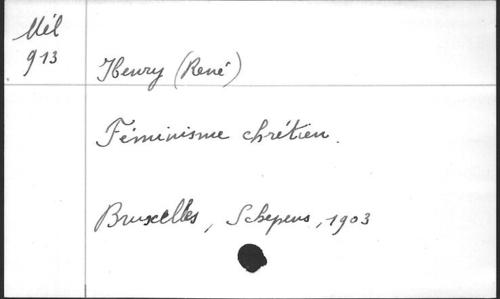 Mél
913
Henry (René)
Féminisme chrétien.
Bruxelles, Schepens, 1903